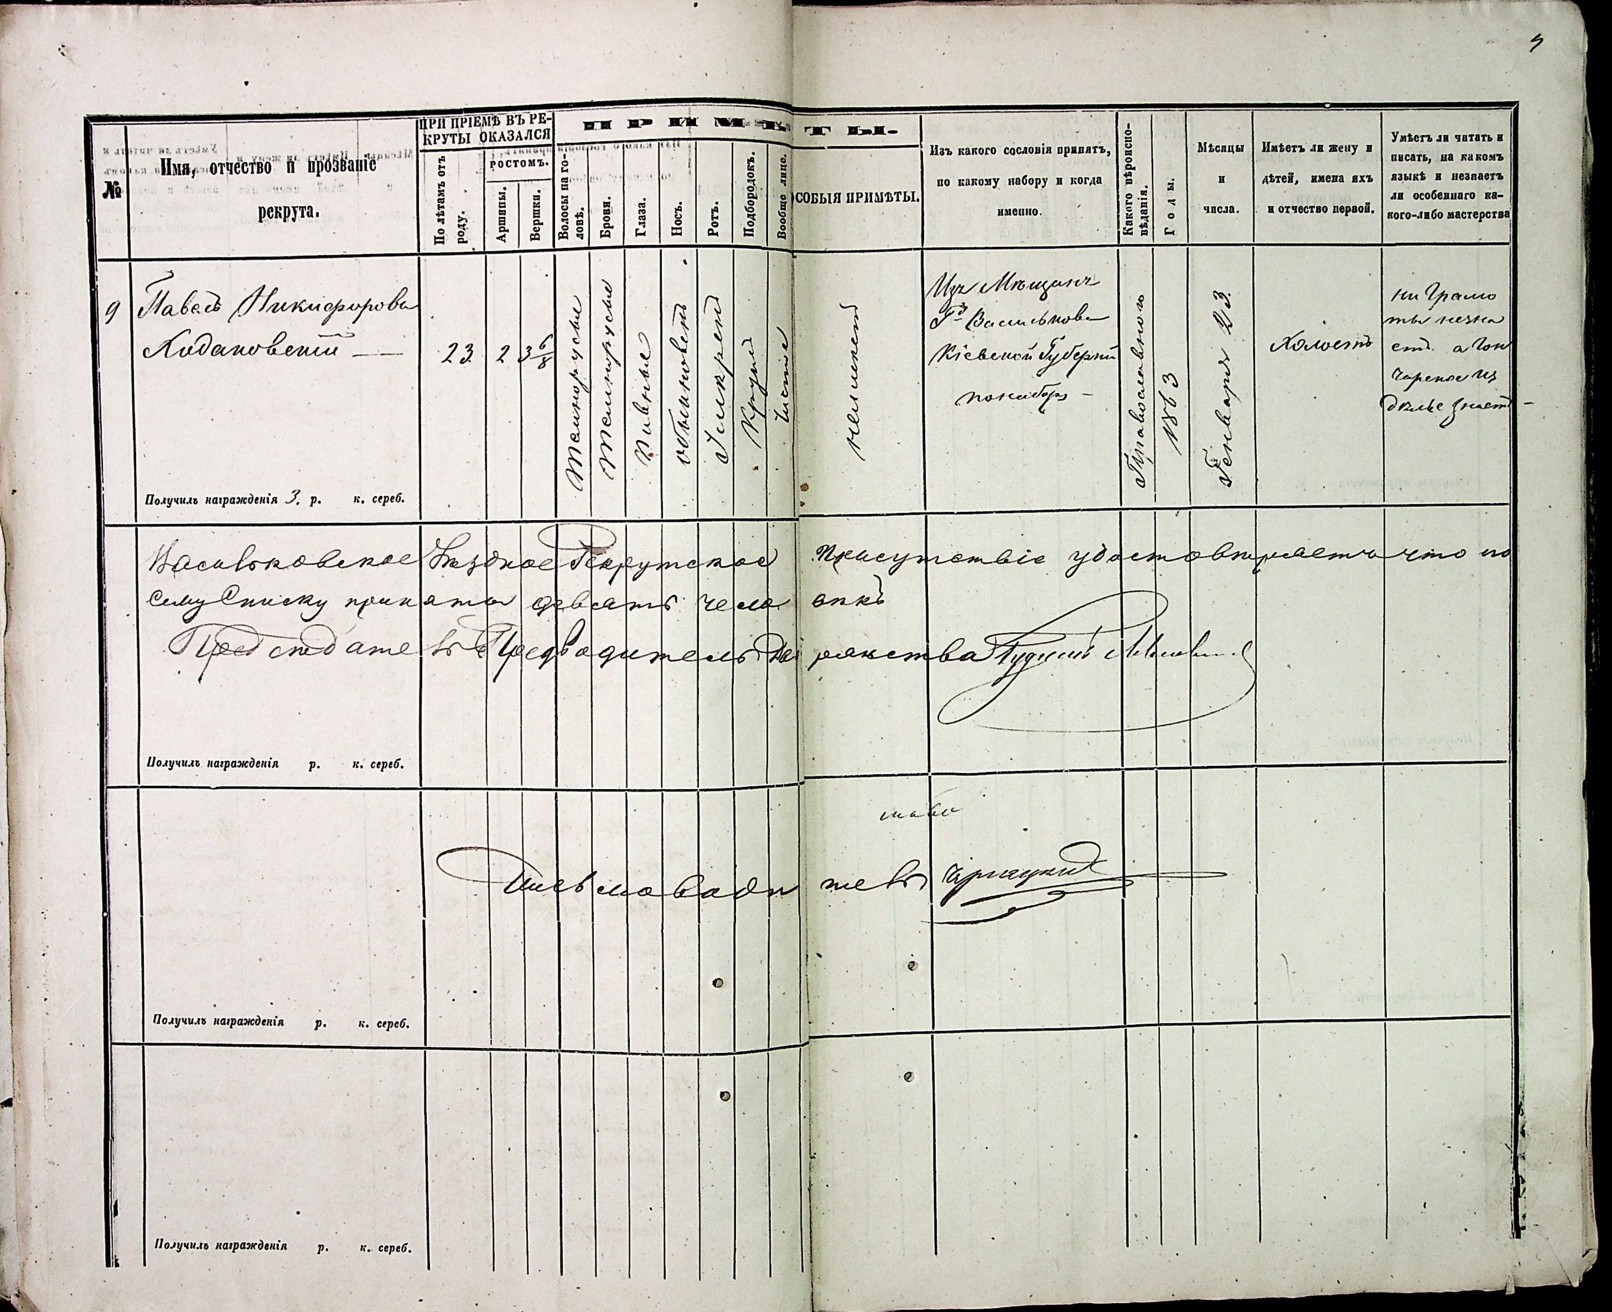 9
№
Имя, отчество и прозваніе
рекрута.
ПРИ ПРІЕМѢ ВЪ РЕ-
КРУТЫ ОКАЗАЛСЯ
По лѣтамъ отъ
роду.
ростомъ.
Аршины.
Вершки.
ПРИМѢТЫ.
Волосы на го-
ловѣ.
Брови.
Глаза.
Носъ.
Ротъ.
Подбородокъ.
Вообще лице.
ОСОБЫЯ ПРИМѢТЫ.
Изъ какого сословія принятъ,
по какому набору и когда
именно.
Какого вѣроиспо-
вѣданія.
Годы.
Мѣсяцы
и
числа.
Имѣетъ ли жену и
дѣтей, имена ихъ
и отчество первой.
Умѣетъ ли читать и
писать, на какомъ
языкѣ и незнаетъ
ли особеннаго ка-
кого-либо мастерства
9
Павелъ Никифоровъ
Ходаковскій
23
2
3 6/8
Темнорусые
Темнорусые
Пивные
обыкновенъ
Умѣренъ
Круглый
Чистое
неимеетъ
Изъ Мещанъ
Гд Василькова
Кіевской Губерніи
понабору
Православнаго
1863
Генваря 23.
Холостъ
ни Грамо
ты незна
етъ а Гон
чарное из
дѣлье знаетъ
Получилъ награжденія 3. р. к. сереб.
Васильковское Уѣздное Рекрутское Присутствіе удостовѣряетъ что по
сему Списку приняты девять человѣкъ
Предсѣдатель Предводитель Дворянства
Получилъ награжденія р. к. сереб.
Письмоводитель
Получилъ награжденія р. к. сереб.
Получилъ награжденія р. к. сереб.